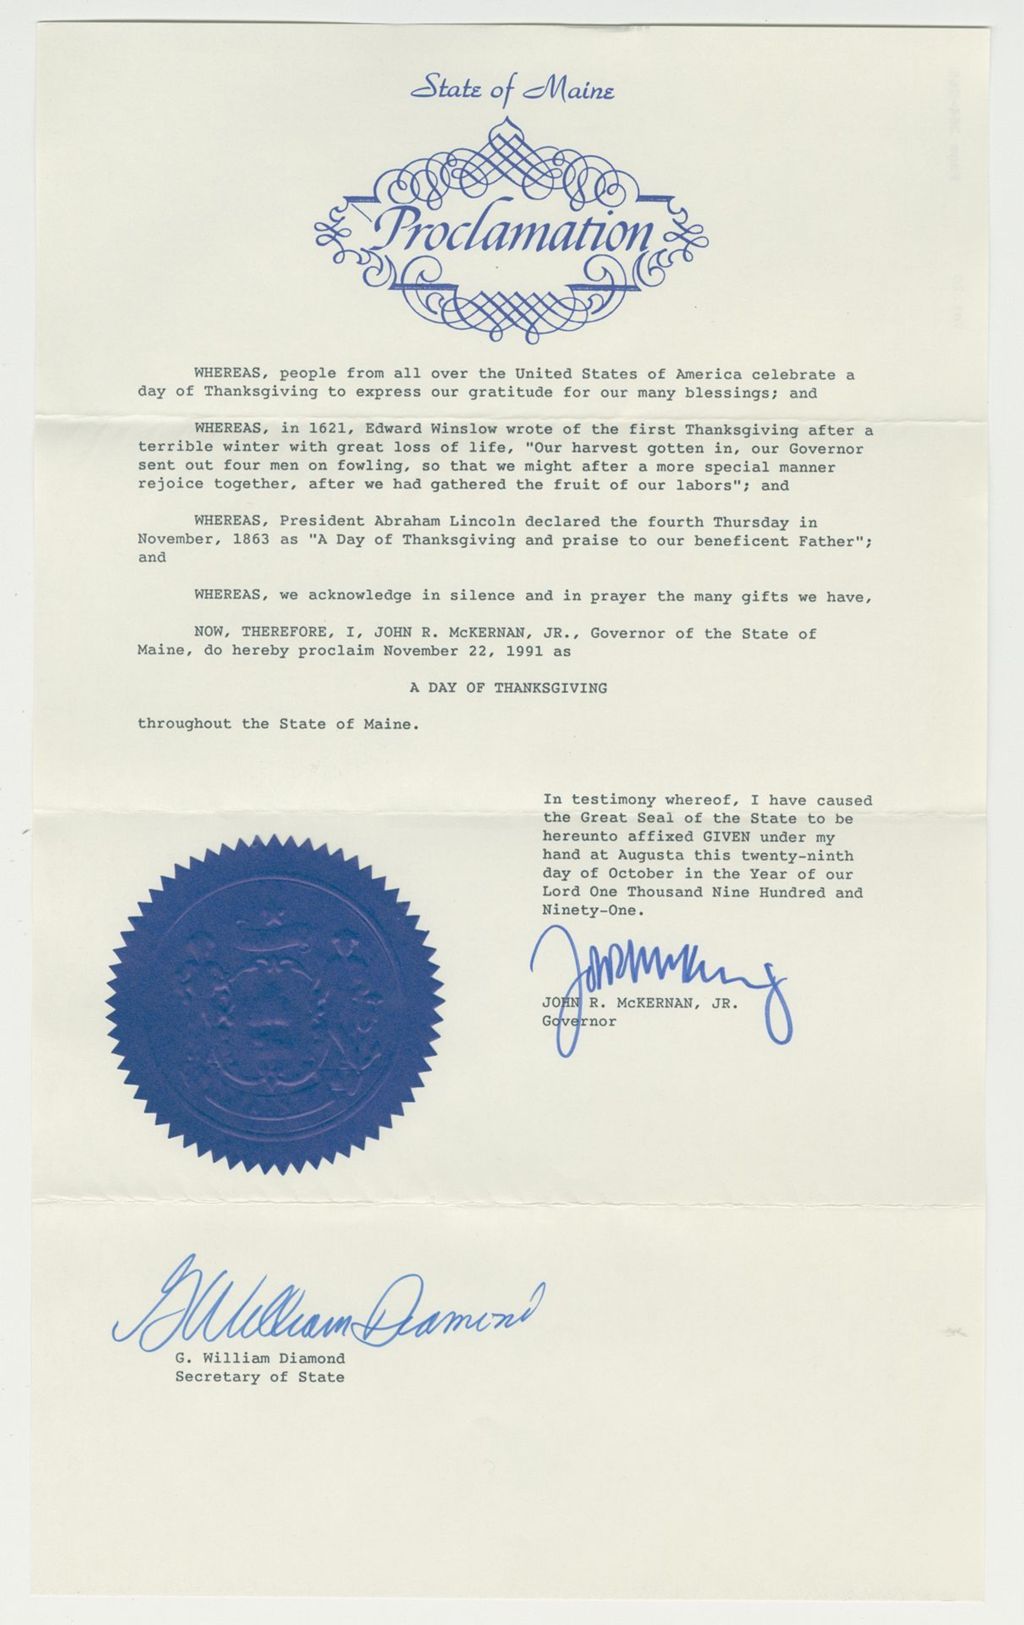 State of Maine
Proclamation
WHEREAS, people from all over the United States of America celebrate a
day of Thanksgiving to express our gratitude for our many blessings; and
WHEREAS, in 1621, Edward Winslow wrote of the first Thanksgiving after a
terrible winter with great loss of life, "Our harvest gotten in, our Governor
sent out four men on fowling, so that we might after a more special manner
rejoice together, after we had gathered the fruit of our labors"; and
WHEREAS, President Abraham Lincoln declared the fourth Thursday in
November, 1863 as "A Day of Thanksgiving and praise to our beneficent Father";
and
WHEREAS, we acknowledge in silence and in prayer the many gifts we have,
NOW, THEREFORE, I, JOHN R. McKERNAN, JR., Governor of the State of
Maine, do hereby proclaim November 22, 1991 as
A DAY OF THANKSGIVING
throughout the State of Maine.
In testimony whereof, I have caused
the Great Seal of the State to be
hereunto affixed GIVEN under my
hand at Augusta this twenty-ninth
day of October in the Year of our
Lord One Thousand Nine Hundred and
Ninety-One.
JOHN R. McKERNAN, JR.
Governor
G William Diamond
G. William Diamond
Secretary of State